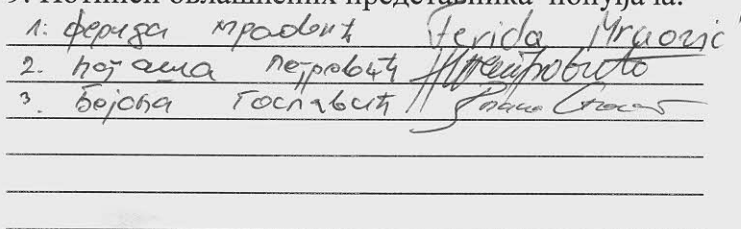 9. Потписи овлашћених представника понуђача:
1. Ферида Мраовић Ferida Mraović
2. Наташа Петровић
3. Бојана Гославић